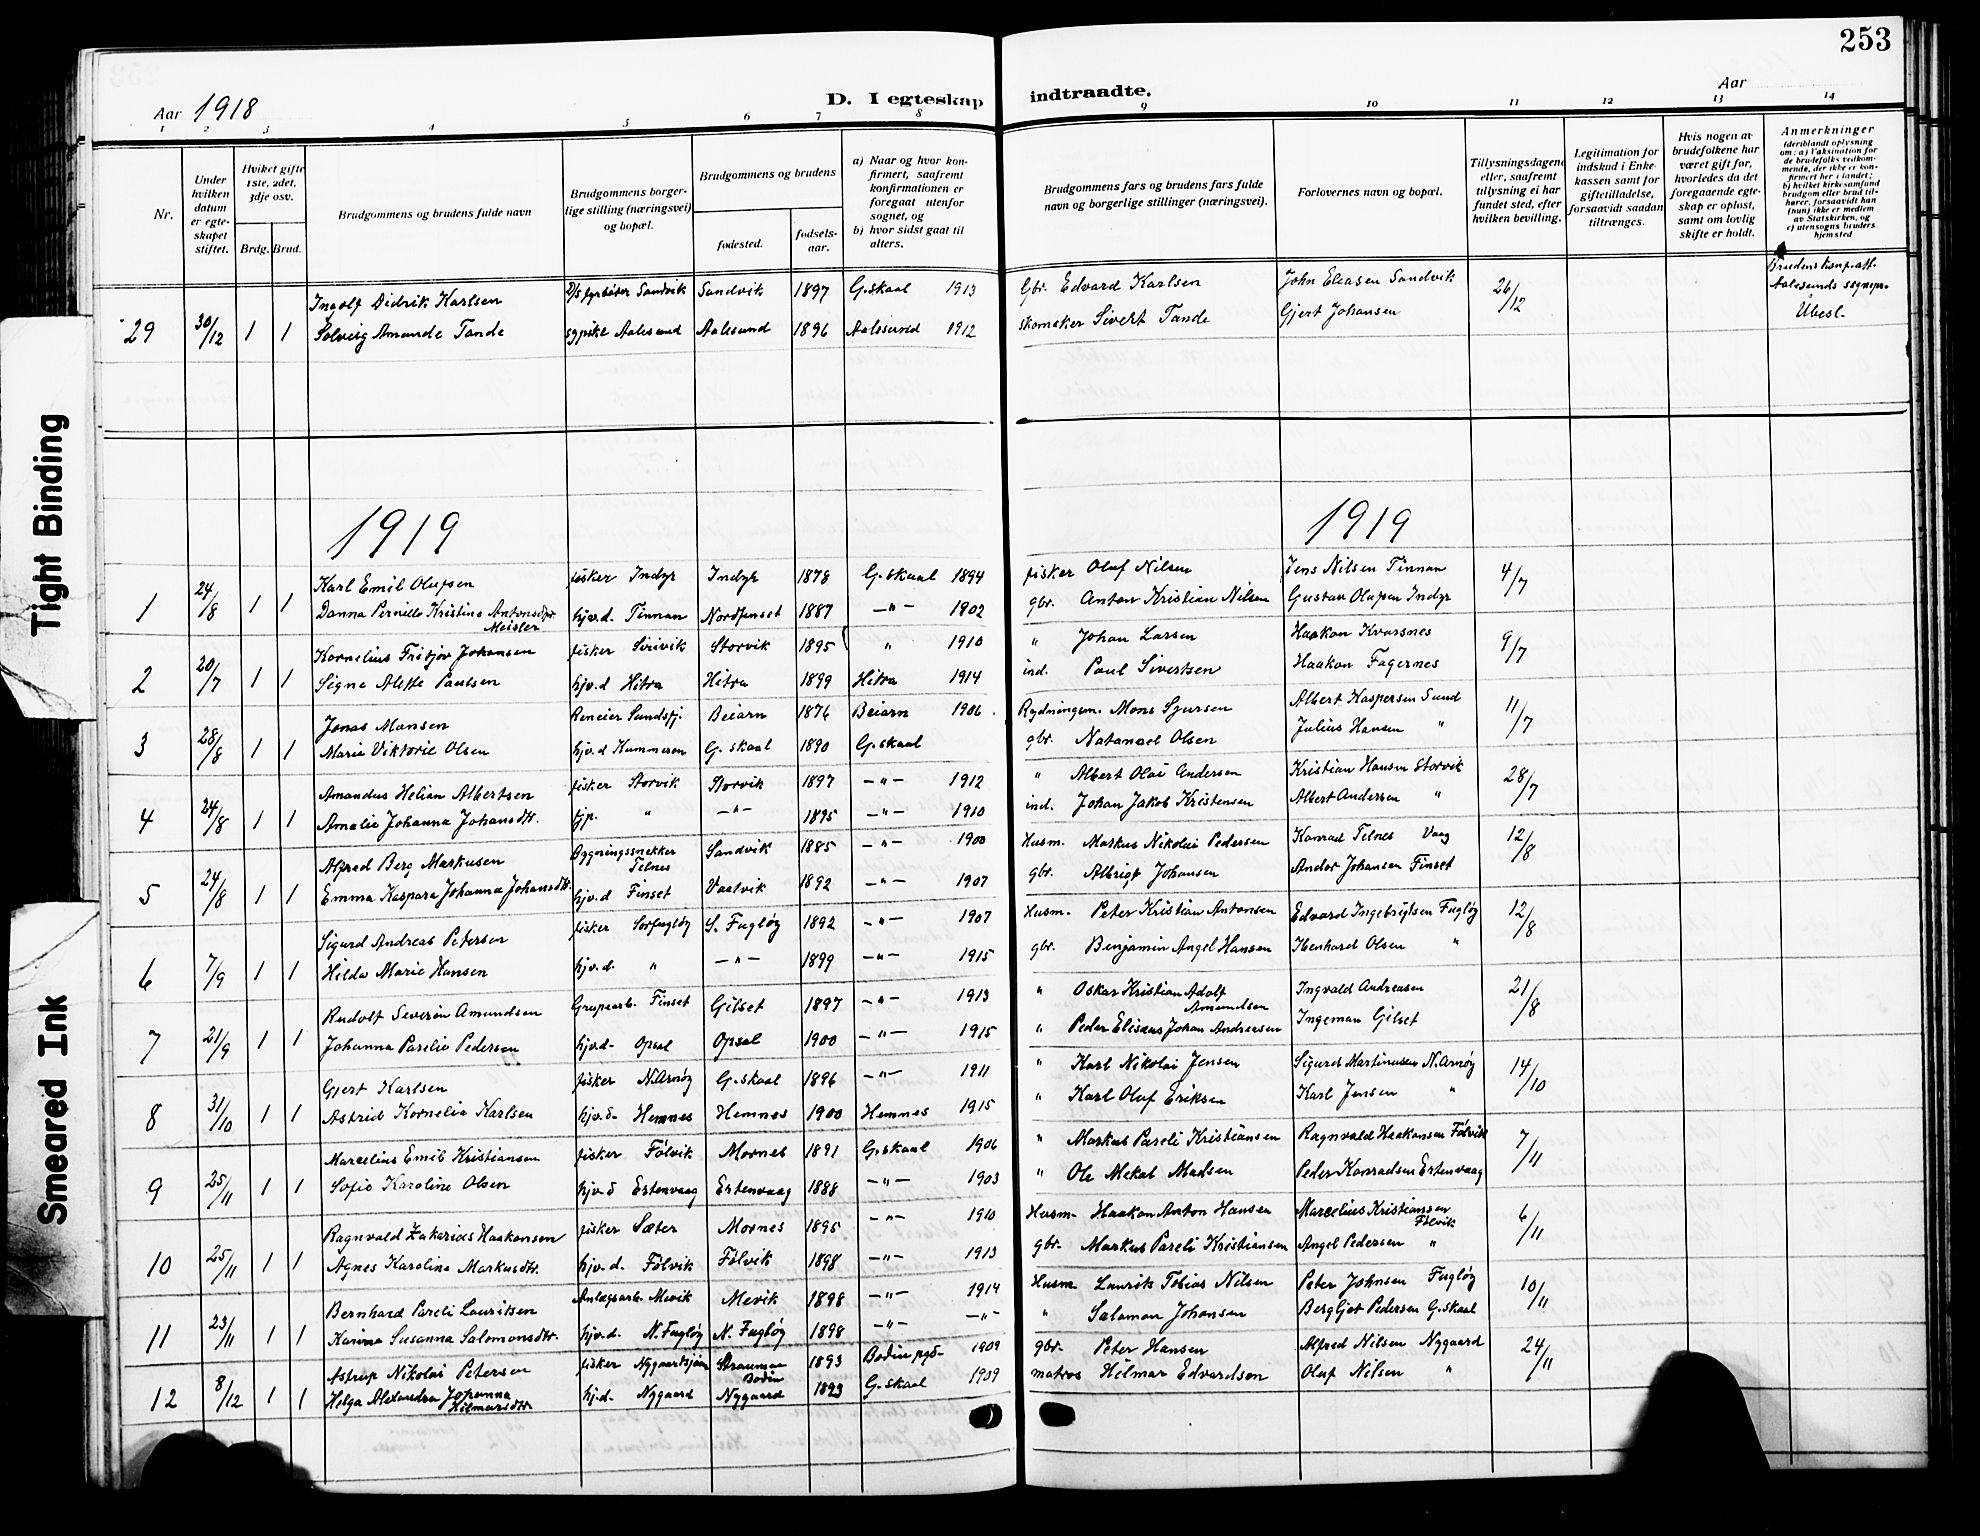 253
Aar 1918
D. I egteskap indtraadte.
Aar
1 2 3 4 5 6 7 8 9 10 11 12 13 14
Nr.
Under hvilken datum er egteskapet stiftet.
Hviket gifte 1ste, 2det, 3dje osv.
Brdg. Brud.
Brudgommens og brudens fulde navn
Brudgommens borgerlige stilling (næringsvei) og bopæl.
Brudgommens og brudens
fødested.
fødselsaar.
a) Naar og hvor konfirmert, saafremt konfirmationen er foregaat utenfor sognet, og
b) hvor sidst gaat til alters.
Brudgommens fars og brudens fars fulde navn og borgerlige stillinger (næringsvei).
Forlovernes navn og bopæl.
Tillysningsdagene eller, saafremt tillysning ei har fundet sted, efter hvilken bevilling.
Legitimation for indskud i Enkekassen samt for giftetilladelse, forsaavidt saadan tiltrænges.
Hvis nogen av brudefolkene har været gift før, hvorledes da det foregaaende egteskap er opløst, samt om lovlig skifte er holdt.
Anmerkninger (deriblandt oplysning om: a) Vaksination for de brudefolks vedkommende, der ikke er konfirmert her i landet; b) hvilket kirkesamfund brudgom eller brud tilhører, forsaavidt han (hun) ikke er medlem av Statskirken, og c) utensogns bruders hjemsted
Ingolf Didrik Karlsen D/S fyrbøter Sandvik Sandvik 1897 G.skaal 1913 Gbr. Edvard Karlsen John Eliasen Sandvik 26/12 Aalesunds sognepr.
29 30/12 1 1 Solveig Amanda Tande sypike Aalesund Aalesund 1896 Aalesund 1912 skomaker Sivert Tande Gjert Johansen Ubesl.
1919 1919
Karl Emil Olufsen fisker Indyr Indyr 1878 G.skaal 1894 fisker Oluf Nilsen Jens Nilsen Finnan 4/7
1 24/8 1 1 Danna Pernille Kristine Antonsdtr. Meisler hjv.d. Finnan Nordfinset 1887 —"— 1902 gbr. Anton Kristian Nilsen Gustav Olufsen Indyr
Kornelius Fritjov Johansen fisker Sørvik Storvik 1895 " 1910 " Johan Larsen Haakon Kvarsnes 9/7
2 20/7 1 1 Signe Alette Paulsen hjv.d Hitra Hitra 1899 Hitra 1914 ind. Paul Sivertsen Haakon Fagernes
Jonas Monsen Reneier Sundsfj. Beiarn 1876 Beiarn 1906 Rydningsm. Mons Sjursen Albert Kaspersen Sund 11/7
3 28/8 1 1 Marie Viktorie Olsen hjv.d Hammeren G.skaal 1890 G.skaal gbr. Natanael Olsen Julius Hansen "
Amandus Helian Albertsen fisker Storvik Storvik 1897 —"— 1912 " Albert Olai Andersen Kristian Hansen Storvik 28/7
4 24/8 1 1 Amalie Johanna Johansdtr. tjp. " —"— 1895 —"— 1910 ind. Johan Jakob Kristensen Albert Andersen "
Alfred Berg Markusen Bygningssnekker Telnes Sandvik 1885 —"— 1900 Husm. Markus Nikolai Pedersen Konrad Telnes Vaag 12/8
5 24/8 1 1 Emma Kaspara Johanna Johansdtr. hjv.d Finset Vaatvik 1892 —"— 1907 gbr. Albrigt Johansen Andor Johansen Finset
Sigurd Andreas Petersen fisker Sørfugløy S. Fugløy 1892 —"— 1907 Husm. Peter Kristian Antonsen Edvard Ingebrigtsen Fugløy 12/8
6 7/9 1 1 Hilda Marie Hansen hjv.d. " —"— 1899 —"— 1915 gbr. Benjamin Angel Hansen Ibenhard Olsen "
Rudolf Severin Amundsen Grupearb. Finset Gilset 1897 —"— 1913 " Oskar Kristian Adolf Amundsen Ingvald Andreasen 21/8
7 21/9 1 1 Johanna Parelie Pedersen hjv.d. Opsal Opsal 1900 —"— 1915 " Peder Eliseus Johan Andreasen Ingeman Gilset
Gjert Karlsen fisker N.Arnøy G.skaal 1896 —"— 1911 " Karl Nikolai Jensen Sigurd Martinussen N.Arnøy 14/10
8 31/10 1 1 Astrid Kornelia Karlsen hjv.d. Hemnes Hemnes 1900 Hemnes 1915 " Karl Oluf Eriksen Karl Jensen "
Marcelius Emil Kristiansen fisker Følvik Mornes 1891 G.skaal 1906 " Markus Pareli Kristiansen Ragnvald Haakonsen Følvik 7/11
9 25/11 1 1 Sofie Karoline Olsen hjv.d Ertenvaag Ertenvaag 1888 —"— 1903 " Ole Mekal Madsen Peder Konradsen Ertenvaag
Ragnvald Zakarias Haakonsen fisker Sæter Mornes 1895 —"— 1910 Husm. Haakon Anton Hansen Marcelius Kristiansen Følvik 6/11
10 25/11 1 1 Agnes Karoline Markusdtr. hjv.d. Følvik Følvik 1898 —"— 1913 gbr. Markus Pareli Kristiansen Angel Pedersen "
Bernhard Pareli Lauritsen Anlægsarb. Mevik Mevik 1898 —"— 1914 Husm. Laurits Tobias Nilsen Peter Johnsen Fugløy 10/11
11 23/11 1 1 Karina Susanna Salomonsdtr. hjv.d. N. Fugløy N. Fugløy 1898 —"— —"— " Salamon Johansen Berg Gjet Pedersen G.skaal
Astrup Nikolai Petersen fisker Nygaardsjøen Straumen Bodin 1893 Bodin pgd. 1909 gbr. Peter Hansen Alfred Nilsen Nygaard 24/11
12 8/12 1 1 Helga Alexandra Johanna Hilmarsdtr. hj.d. Nygaard Nygaard 1893 G.skaal 1909 matros Hilmar Edvardsen Oluf Nilsen "
Tight Binding
Smeared Ink